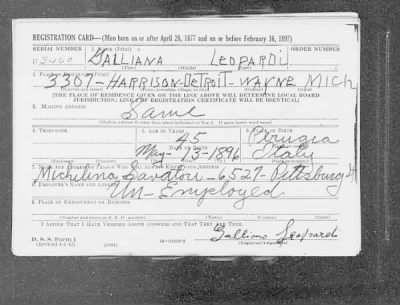 REGISTRATION CARD—(Men born on or after April 28, 1877 and on or before February 16, 1897)
SERIAL NUMBER 1. NAME (Print) ORDER NUMBER
GALLIANA LEOPARDI
2. PLACE OF RESIDENCE (Print)
3307-HARRISON-DETROIT-WAYNE MICH
[THE PLACE OF RESIDENCE GIVEN ON THE LINE ABOVE WILL DETERMINE LOCAL BOARD
JURISDICTION; LINE 2 OF REGISTRATION CERTIFICATE WILL BE IDENTICAL]
3. MAILING ADDRESS
Same
4. TELEPHONE 5. AGE IN YEARS 6. PLACE OF BIRTH
45 Perugia
DATE OF BIRTH
May-13-1896 Italy
7. NAME AND ADDRESS OF PERSON WHO WILL ALWAYS KNOW YOUR ADDRESS
Michelina 6527-Pittsburg
8. EMPLOYER'S NAME AND ADDRESS
Un-Employed
9. PLACE OF EMPLOYMENT OR BUSINESS
I AFFIRM THAT I HAVE VERIFIED ABOVE ANSWERS AND THAT THEY ARE TRUE.
D. S. S. Form 1
Galliano Leopardi